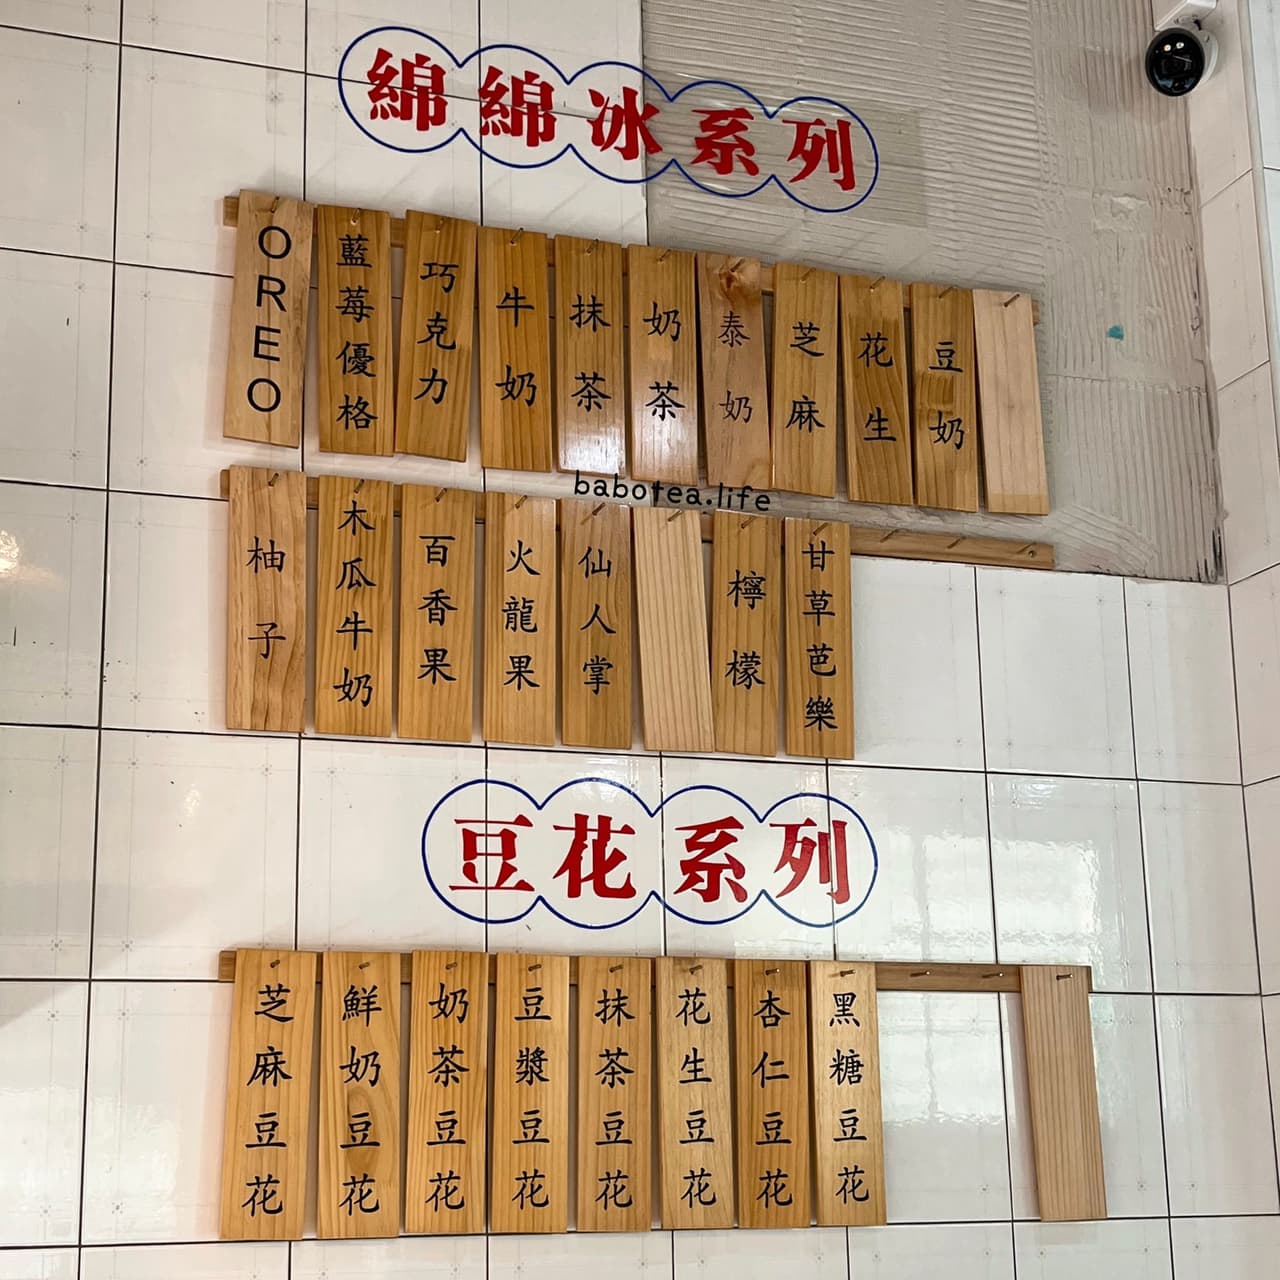 綿綿冰系列
OREO
藍莓優格
巧克力
牛奶
抹茶
奶茶
泰奶
芝麻
花生
豆奶
babotea.life
柚子
木瓜牛奶
百香果
火龍果
仙人掌
檸檬
甘草芭樂
豆花系列
芝麻豆花
鮮奶豆花
奶茶豆花
豆漿豆花
抹茶豆花
花生豆花
杏仁豆花
黑糖豆花